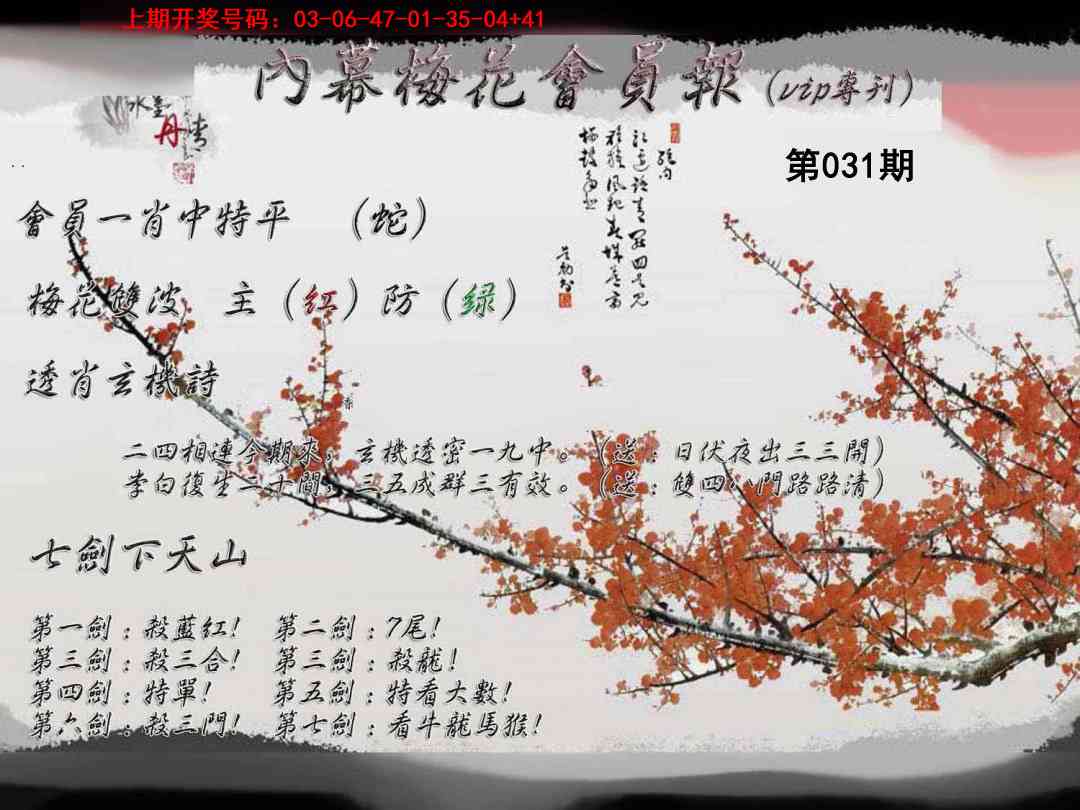 上期开奖号码：03-06-47-01-35-04+41
內幕梅花會員報（vip專刊）
水墨
丹情
第031期
會員一肖中特平 （蛇）
梅花雙波 主（红）防（绿）
透肖玄機詩
二四相連今期來，玄機透密一九中。（送：日伏夜出三三開）
李白復生二十間，三五成群三有效。（送：雙四八門路路清）
七劍下天山
第一劍：殺藍紅！ 第二劍：7尾！
第三劍：殺三合！ 第三劍：殺龍！
第四劍：特單！ 第五劍：特看大數！
第六劍：殺三門！ 第七劍：看牛龍馬猴！